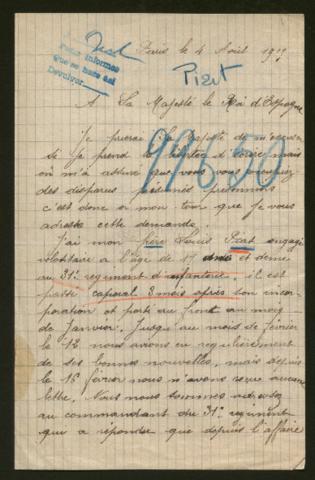 Paris le 4 Août 1915
Pour informes
que se hace así
Devolver
Pizet
A Sa Majesté le Roi d'Espagne
Je prierai Sa Majesté de m'excuser
si je prend la liberté d'écrire mais
on m'a assuré que vous vous occupiez
des disparus présumés prisonniers
c'est donc a mon tour que je vous
adresse cette demande.
99650
J'ai mon frère Louis Pizet engagé
volontaire a l'âge de 17 ans et demi
au 31e regiment d'infanterie il est
passé caporal 3 mois après son incor-
poration et parti au front au mois
de Janvier. Jusqu'au mois de février
le 12 nous avions eu regulièrement
de ses bonnes nouvelles, mais depuis
le 16 fevrier nous n'avons reçu aucune
lettre. Nous nous sommes adressés
au commandant du 31e regiment
qui a répondu que depuis l'affaire